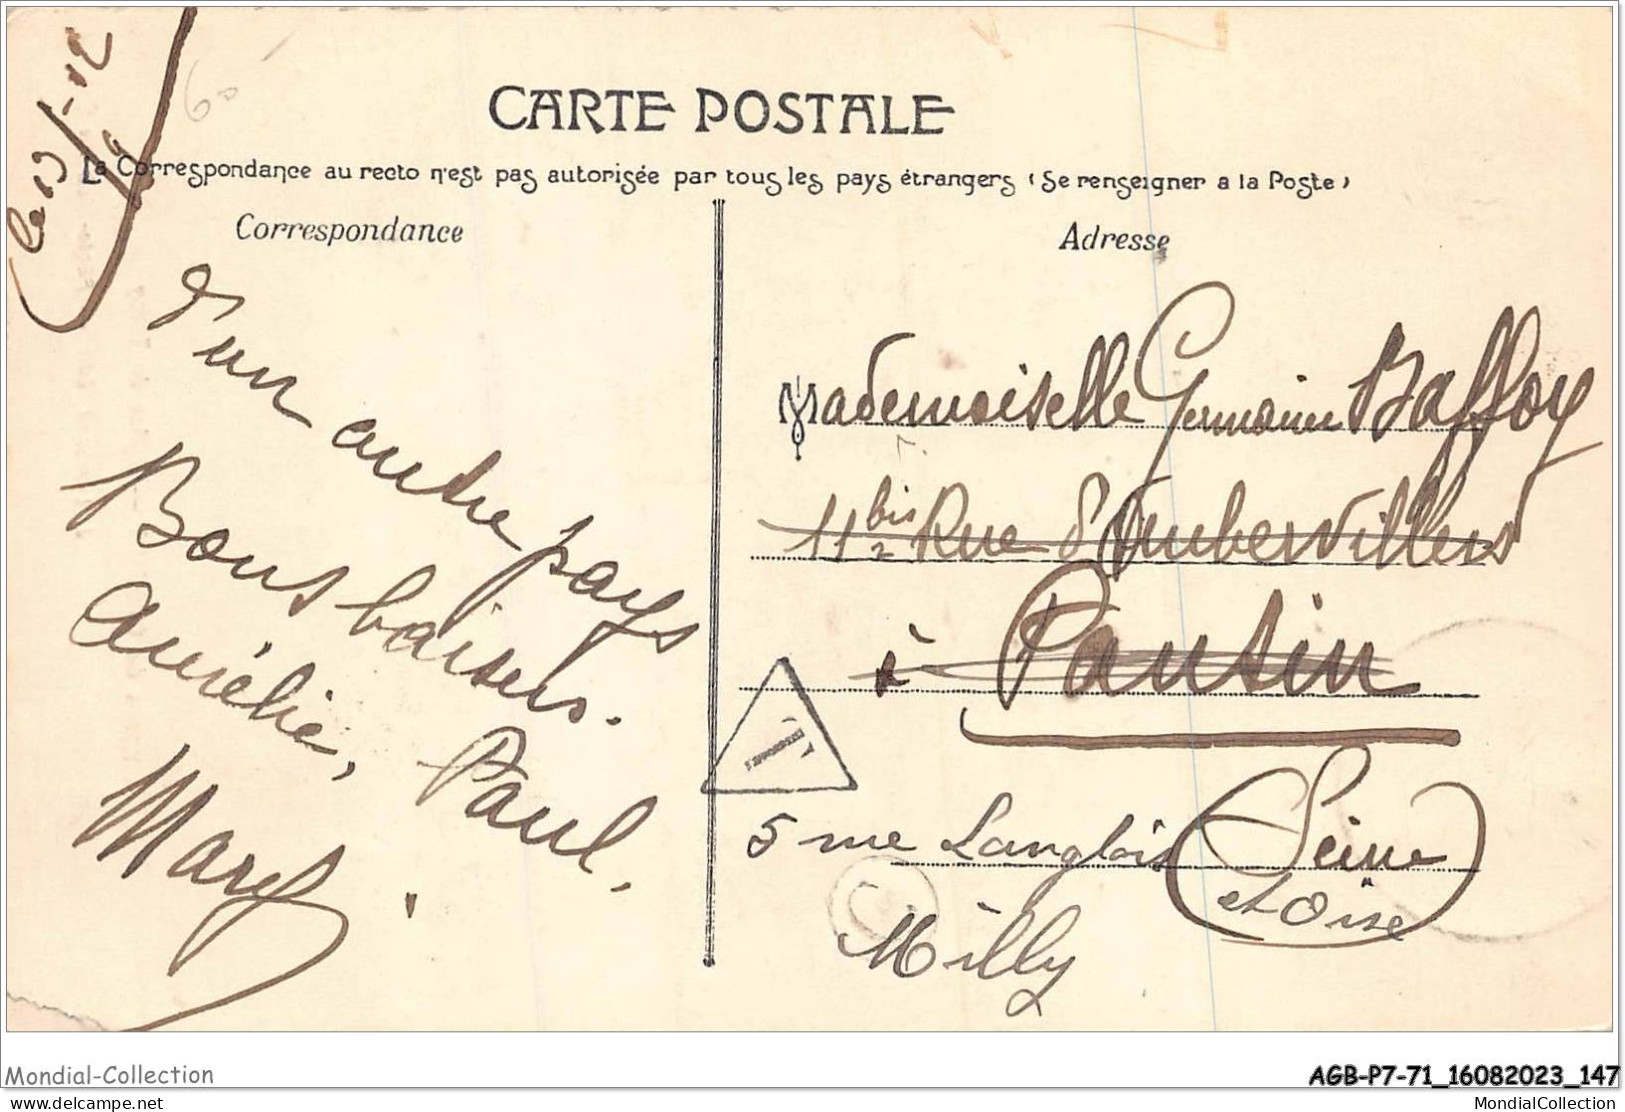 CARTE POSTALE
La Correspondance au recto n'est pas autorisée par tous les pays étrangers (Se renseigner a la Poste)
Correspondance
Adresse
d'un autre pays
Bons baisers.
Aurélie, Paul,
Mary
Mademoiselle Germaine Baffoy
11 bis Rue d'Aubervilliers
à Pantin
T
5 rue Langlois (Seine
et Oise)
Milly
Mondial-Collection
AGB-P7-71_16082023_147
delcampe.net
MondialCollection